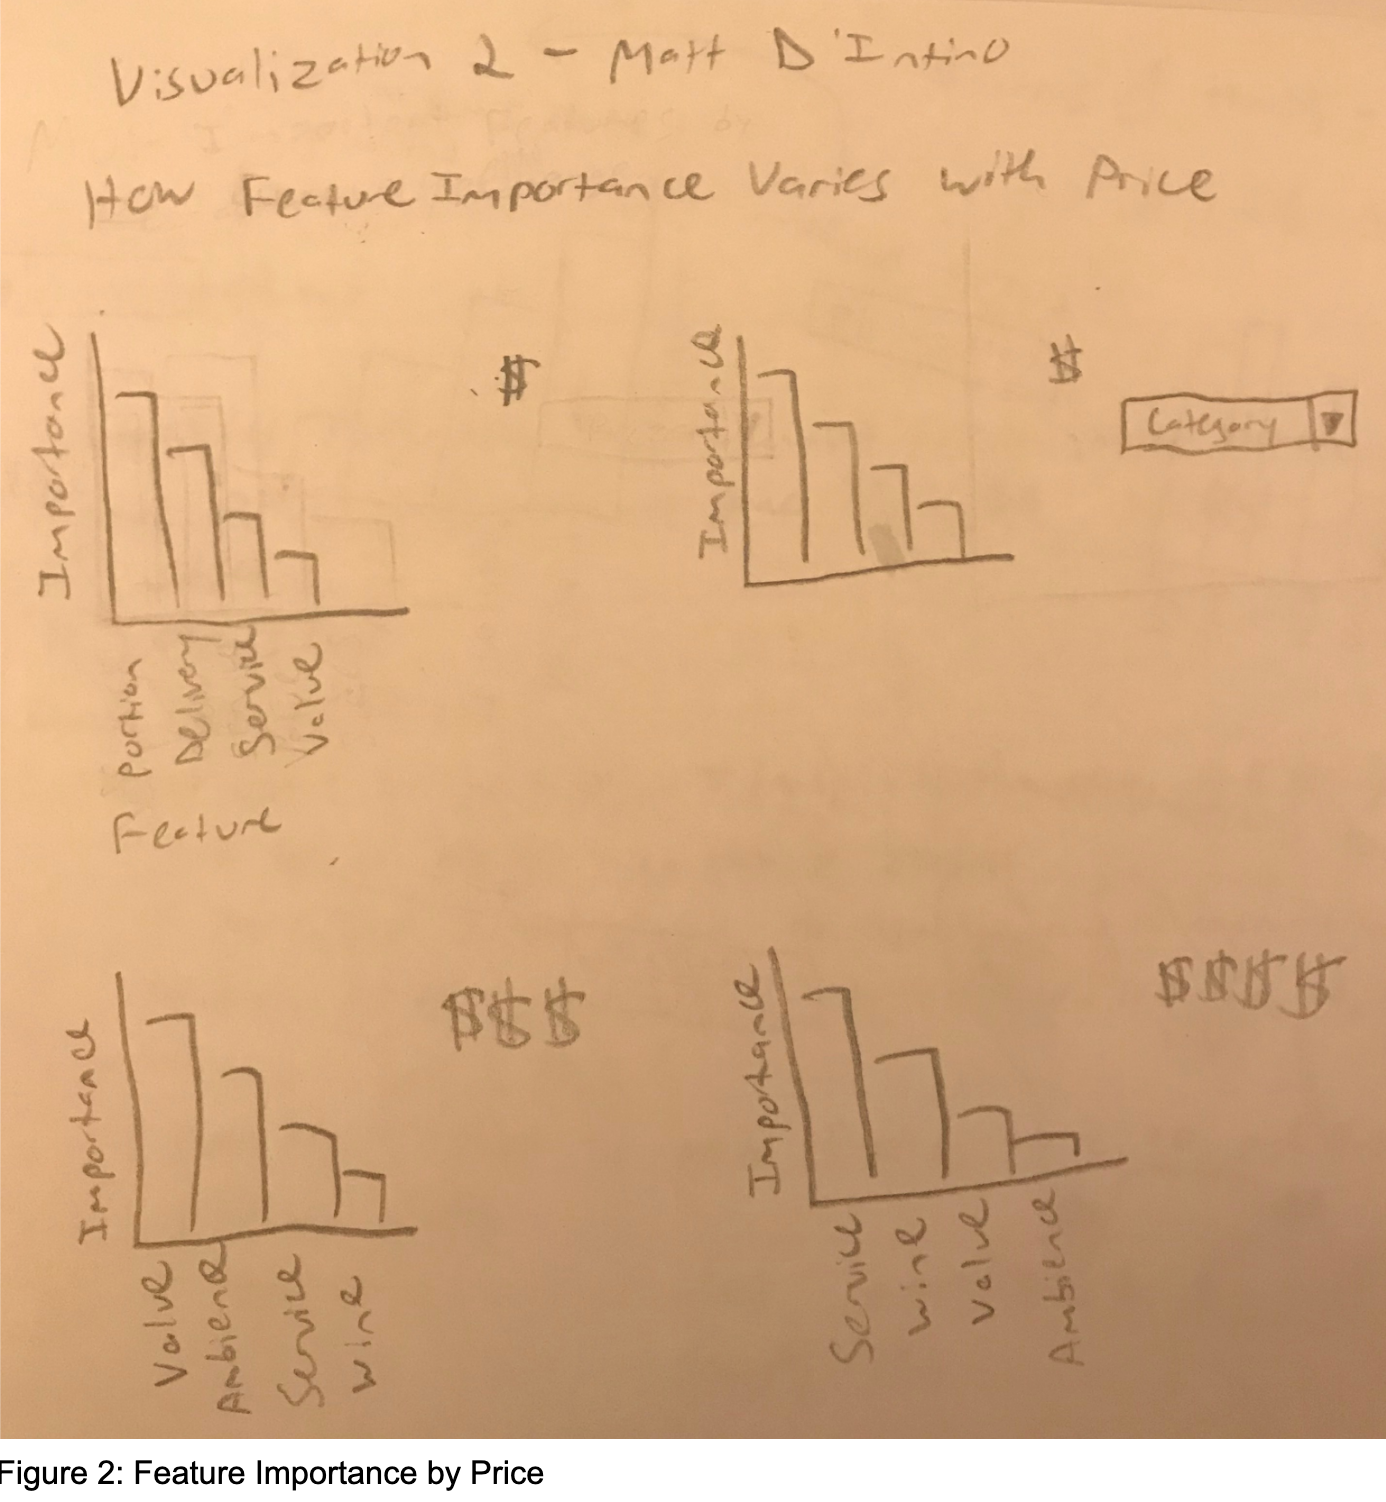 Visualization 2 - Matt D'Intino
How Feature Importance Varies with Price
Importance
$
Portion
Delivery
Service
Value
Feature
Importance
$
Category
Importance
$$$
Value
Ambience
Service
Wine
Importance
$$$$
Service
Wine
Value
Ambience
Figure 2: Feature Importance by Price